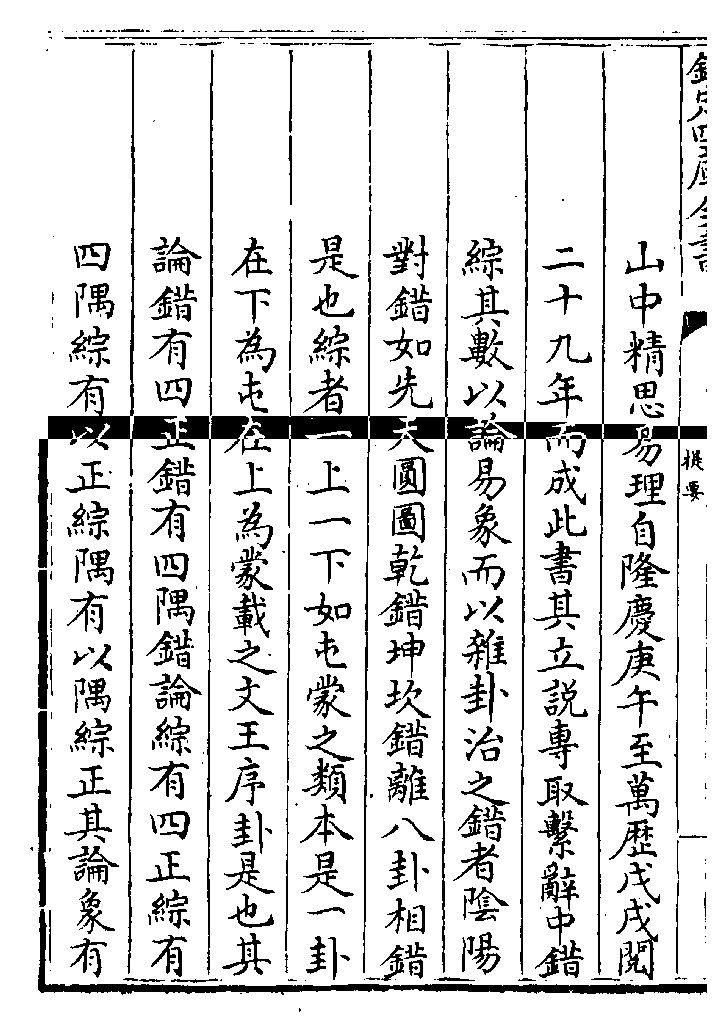 欽定四庫全書
提要
山中精思易理自隆慶庚午至萬歷戊戌閱
二十九年而成此書其立説專取繫辭中錯
綜其數以論易象而以雜卦治之錯者陰陽
對錯如先天圓圖乾錯坤坎錯離八卦相錯
是也綜者一上一下如屯蒙之類本是一卦
在下為屯在上為蒙載之文王序卦是也其
論錯有四正錯有四隅錯論綜有四正綜有
四隅綜有以正綜隅有以隅綜正其論象有